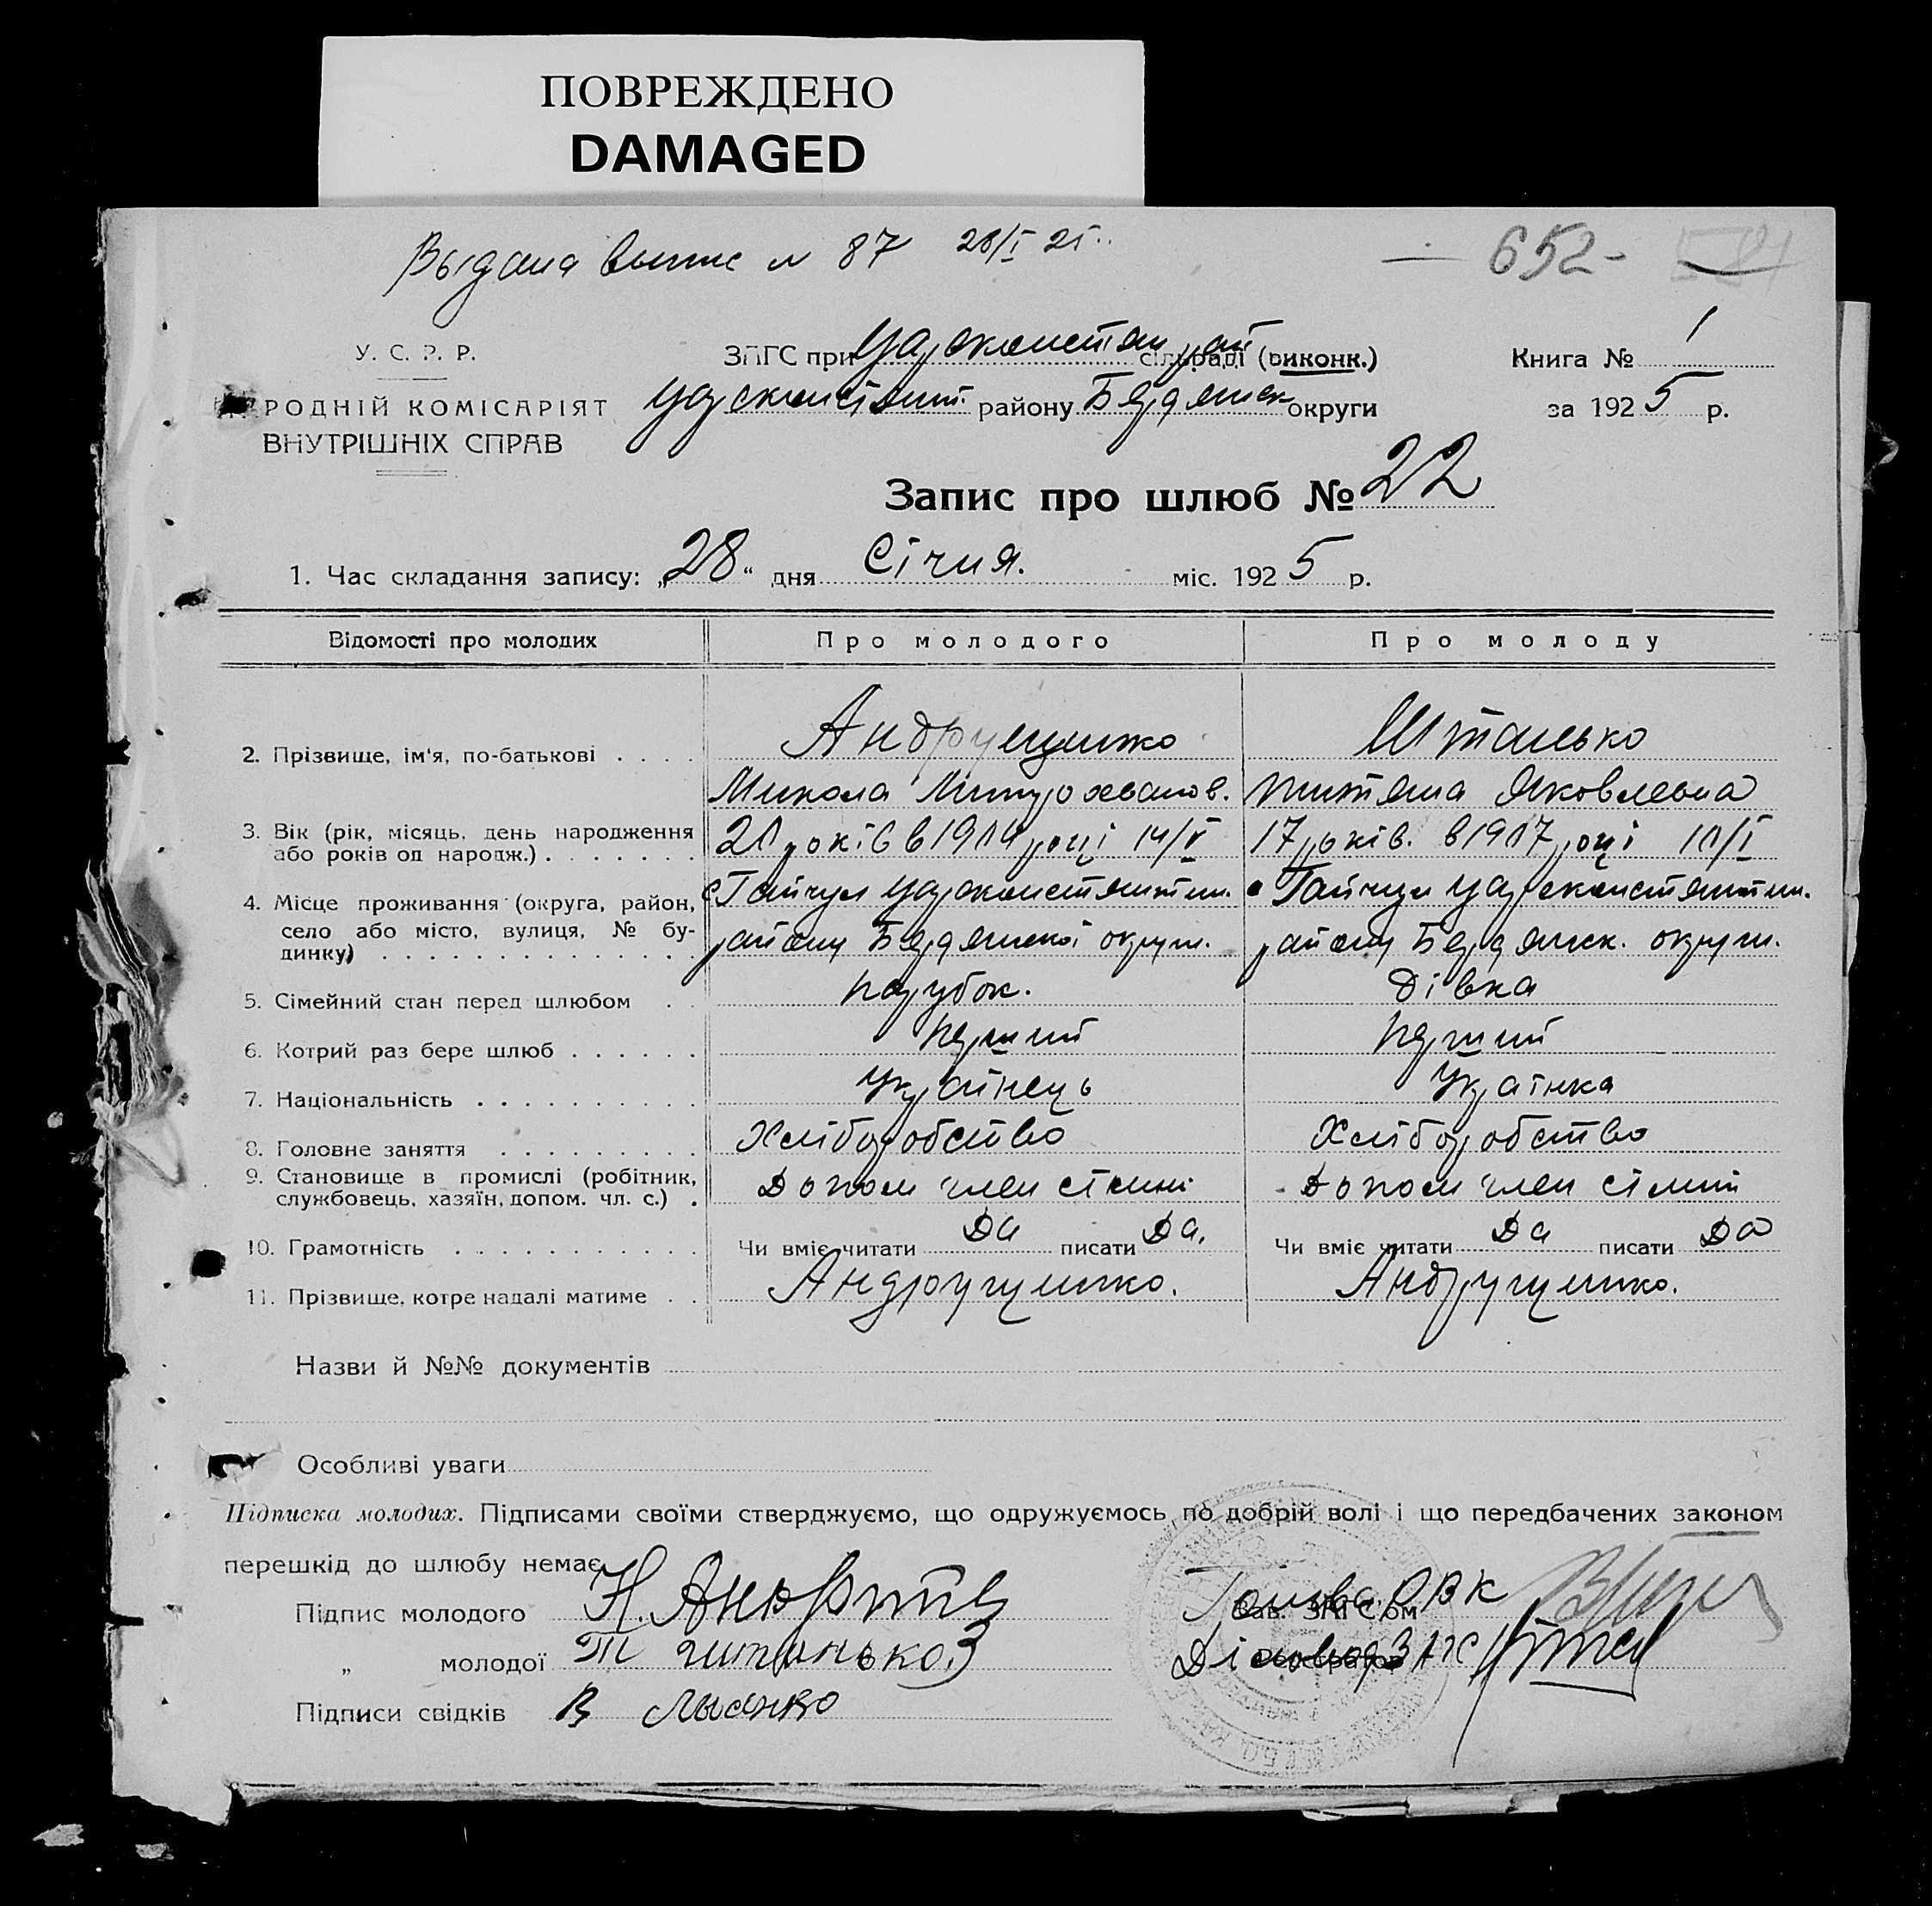 ПОВРЕЖДЕНО
DAMAGED
Выдана выпис № 87 28/I 25..
— 652 -
У. С. Р. Р.
РОДНІЙ КОМІСАРІЯТ
ВНУТРІШНІХ СПРАВ
ЗПГС при Царконстан рай сільраді (виконк.)
Царсконстант. району Бердянск округи
Книга № 1
за 1925 р.
Запис про шлюб № 22
1. Час складання запису: „28“ дня Січня. міс. 1925 р.
Відомості про молодих Про молодого Про молоду
2. Прізвище, ім'я, по-батькові . . . . Андрущенко Штанько
Микола Митрохванов. Титяна Яковлевна
3. Вік (рік, місяць, день народження або років од народж.) . . . . . . . 20 років в 1904 році 14/V 17 років. в 1907 році 10/I
4. Місце проживання (округа, район, село або місто, вулиця, № будинку) с Гайчул Царсконстянтин. с Гайчул Царсконстянтин.
району Бердянської округи. району Бердянск. округи.
5. Сімейний стан перед шлюбом . . Парубок. Дівка
6. Котрий раз бере шлюб . . . . . . Перший Перший
7. Національність . . . . . . . . . . Українець Українка
8. Головне заняття . . . . . . . . . Хліборобство Хліборобство
9. Становище в промислі (робітник, службовець, хазяїн, допом. чл. с.) . Допом член сімні Допом член сімпі
10. Грамотність . . . . . . . . . . . Чи вміє читати Да писати Да. Чи вміє читати Да писати Да
11. Прізвище, котре надалі матиме . . Андрущенко. Андрущенко.
Назви й №№ документів
Особливі уваги
Підписка молодих. Підписами своїми стверджуємо, що одружуємось по добрій волі і що передбачених законом
перешкід до шлюбу немає.
Підпис молодого Н. Голова РВК
Зав. ЗАГС'ом
„ молодої Т штанько Діловод ЗАГС
Підписи свідків В Лысенко